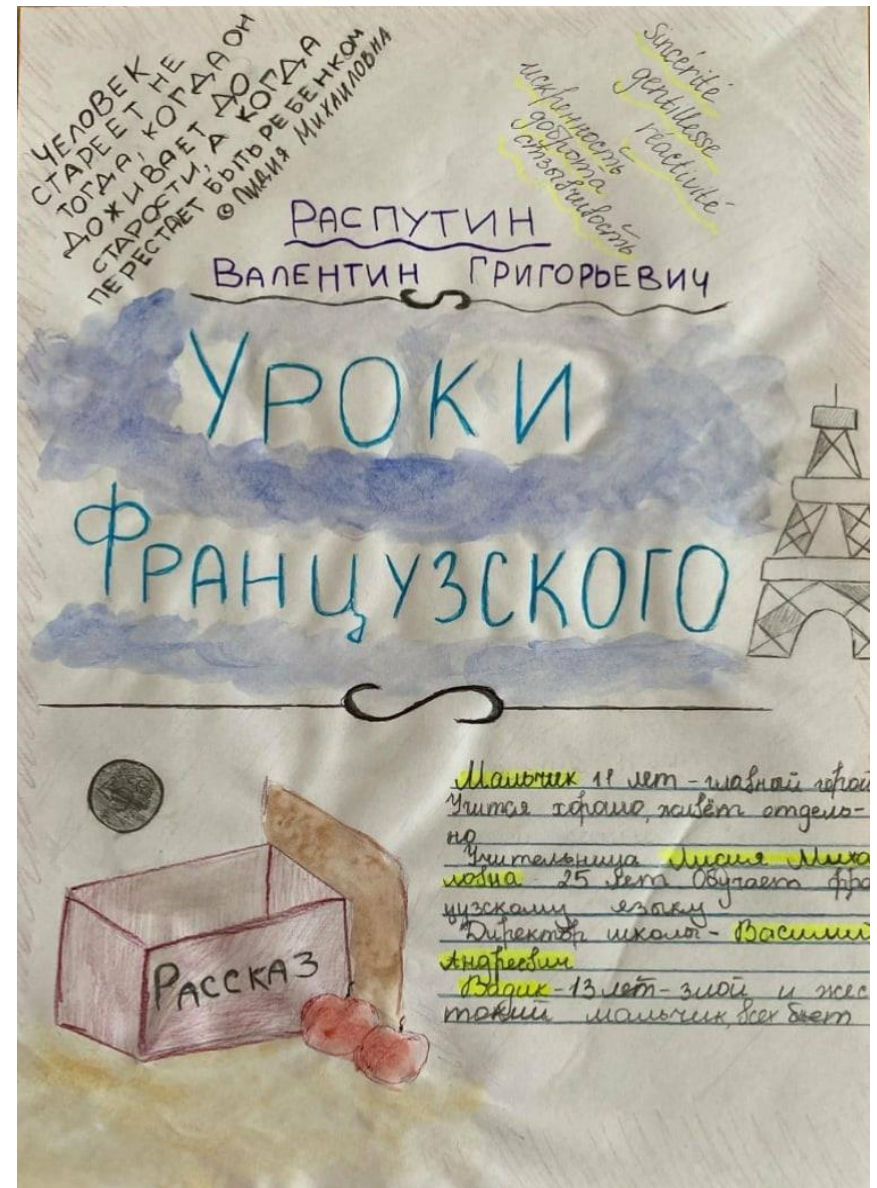 ЧЕЛОВЕК
СТАРЕЕТ НЕ
ТОГДА, КОГДА ОН
ДОЖИВАЕТ ДО
СТАРОСТИ, А КОГДА
ПЕРЕСТАЕТ БЫТЬ РЕБЕНКОМ
© ЛИДИЯ МИХАЙЛОВНА
sincérité
gentillesse
réactivité
искренность
доброта
отзывчивость
РАСПУТИН
ВАЛЕНТИН ГРИГОРЬЕВИЧ
УРОКИ
ФРАНЦУЗСКОГО
Мальчик 11 лет - главный герой
Учится хорошо, живёт отдель-
но
Учительница Лидия Миха
ловна - 25 лет Обучает фра
цузскому языку
Директор школы - Василий
Андреевич
Вадик - 13 лет - злой и жес
токий мальчик, всех бьет
РАССКАЗ